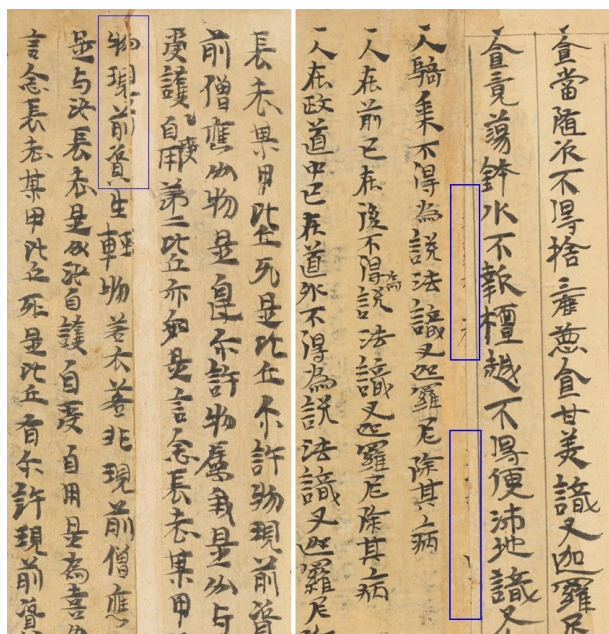 食當随次不得捨葱食甘美識叉迦羅尼
食竟蕩鉢水不報檀越不得便沛地識叉
人騎乗不得為說法識叉迦羅尼除其病
人在前已在後不得為說法識叉迦羅尼除其病
人在政道中已在道外不得為說法識叉迦羅尼
長老某甲比丘死是比丘尒許物現前貲
前僧應分物是尒許物屬我是分与
受護自受用第二比丘亦如是言念長老某甲
物現前貲生輕物若衣若非現前僧應
是与汝長老是分汝自護自受自用是為
言念長老某甲比丘死是比丘有尒許現前貲